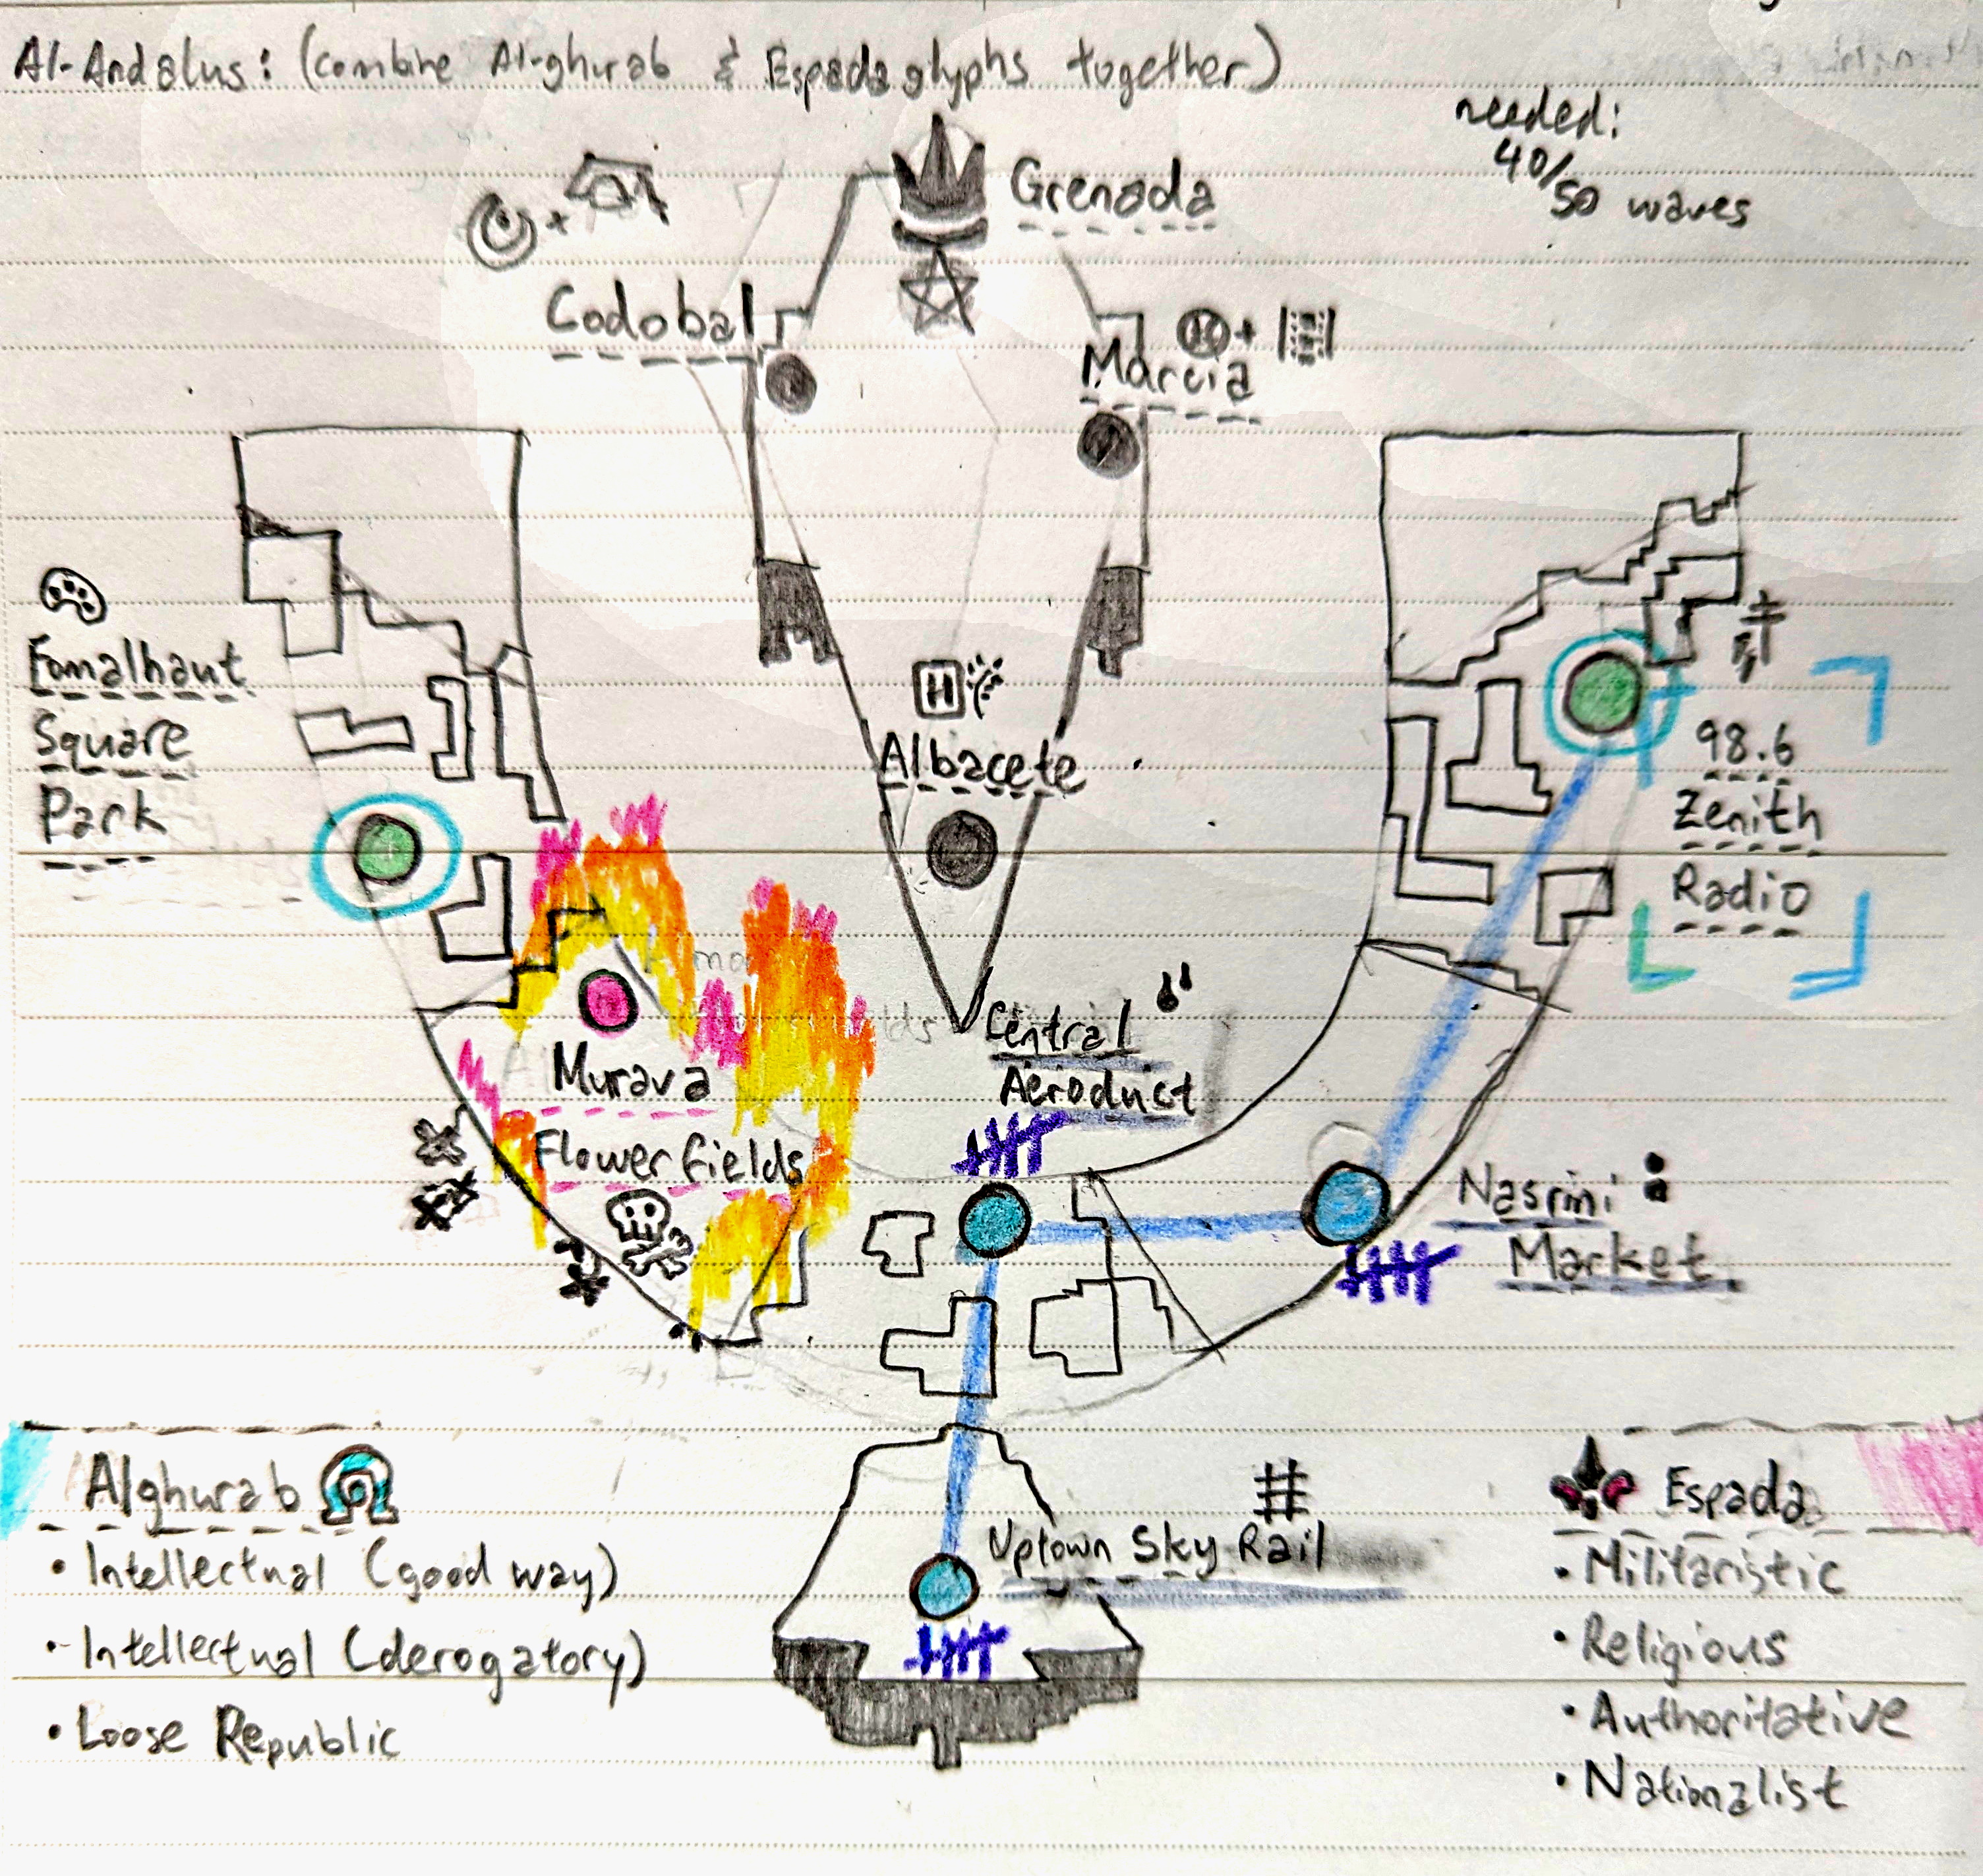 Al-Andalus: (combine Al-ghurab & Espada glyphs together)
needed:
40/50 waves
Grenada
Codobal
Marcia
Fomalhaut
Square
Park
H
Albacete
98.6
Zenith
Radio
Central
Aeroduct
Murava
Flower fields
Nasrini
Market
Uptown Sky Rail
Alghurab
• Intellectual (good way)
• Intellectual (derogatory)
• Loose Republic
Espada
• Militaristic
• Religious
• Authoritative
• Nationalist